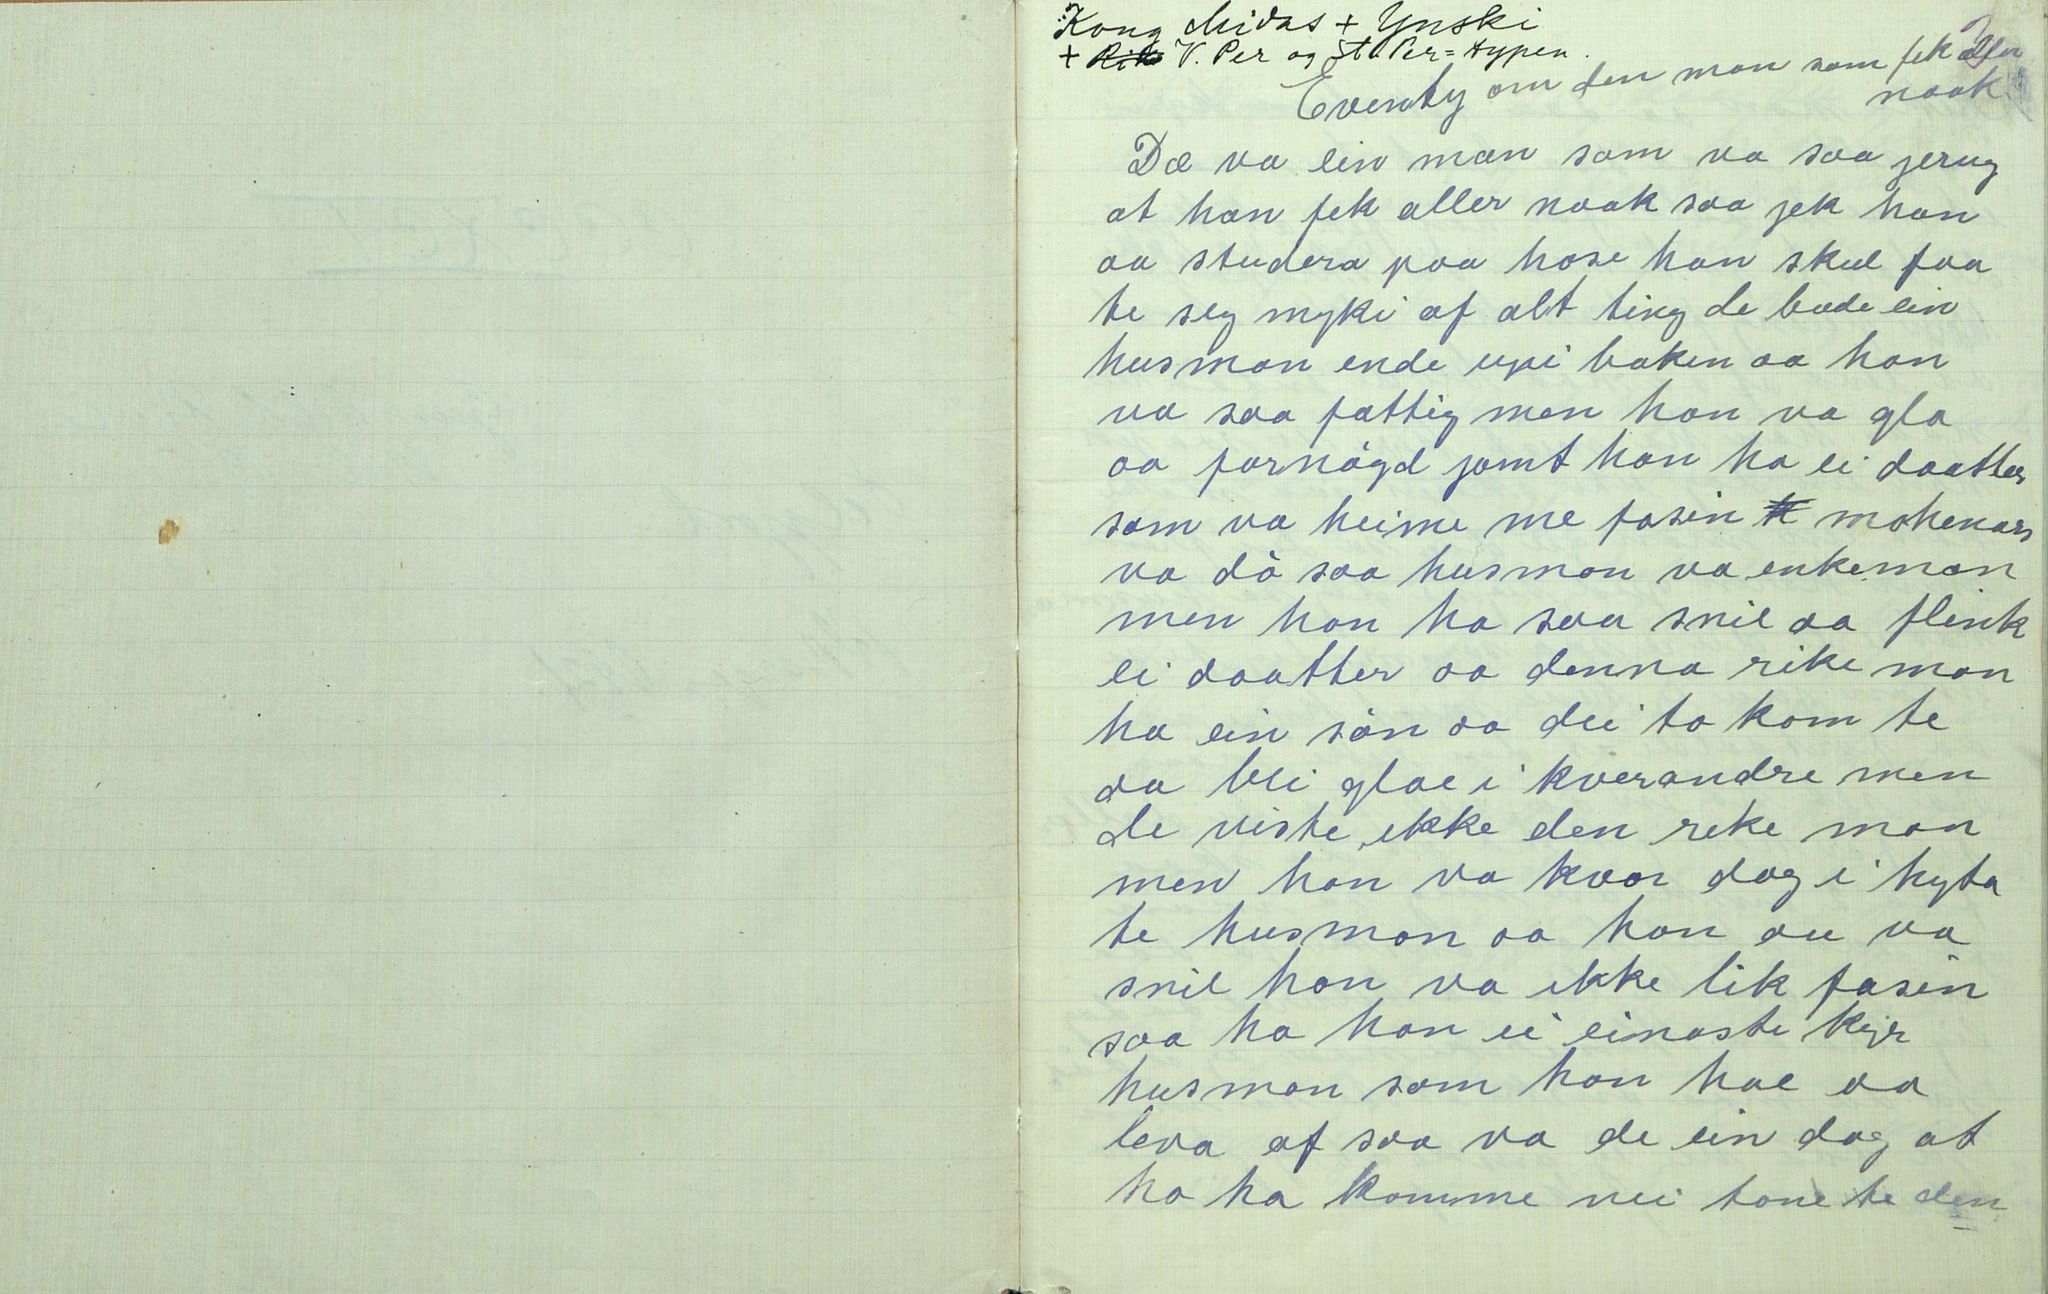 Kong Midas + Ynski
+ V. Per og St. Per = typen.
2
Eventy om den man som fek aller
naak.
Dæ va ein man som va saa jerug
at han fek aller naak saa jek han
aa studera paa hose han skul faa
te seg myki af alt ting de bude ein
husman ende upi baken aa han
va saa fattig men han va gla
aa fornögd jamt han ha ei daatter
som va heime me fasin mohenars
va dö saa husman va enkeman
men han ha saa snil aa flink
ei daatter aa denna rike man
ha ein sön aa dei to kom te
aa bli glae i kverandre men
de viste ikke den reke man
men han va kvar dag i hyta
te husman aa han au va
snil han va ikke lik fasin
saa ha han ei einaste kyr
husman som han hae aa
leva af saa va de ein dag at
ho ha komme nei tone te den